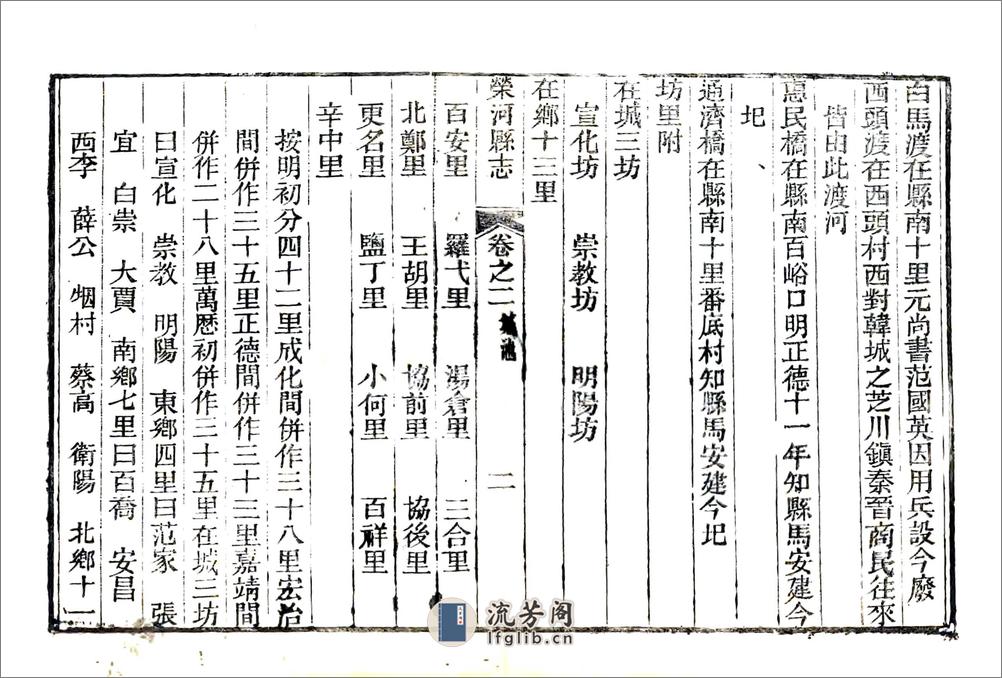 白馬渡在縣南十里元尚書范國英因用兵設今廢
西頭渡在西頭村西對韓城之芝川鎮秦晉商民往來
皆由此渡河
惠民橋在縣南百峪口明正德十一年知縣馬安建今
圮
通濟橋在縣南十里番底村知縣馬安建今圮
坊里附
在城三坊
宣化坊 崇教坊 明陽坊
在鄉十三里
榮河縣志 卷之二 城池 二
百安里 羅弋里 湯倉里 三合里
北鄭里 王胡里 協前里 協後里
更名里 鹽丁里 小何里 百祥里
辛中里
按明初分四十二里成化間併作三十八里宏治
間併作三十五里正德間併作三十三里嘉靖間
併作二十八里萬歷初併作三十五里在城三坊
曰宣化 崇教 明陽 東鄉四里曰范家 張
宜 白祟 大賈 南鄉七里曰百喬 安昌
西李 薛公 村 蔡高 衛陽 北鄉十一
流芳阁
lfglib.cn